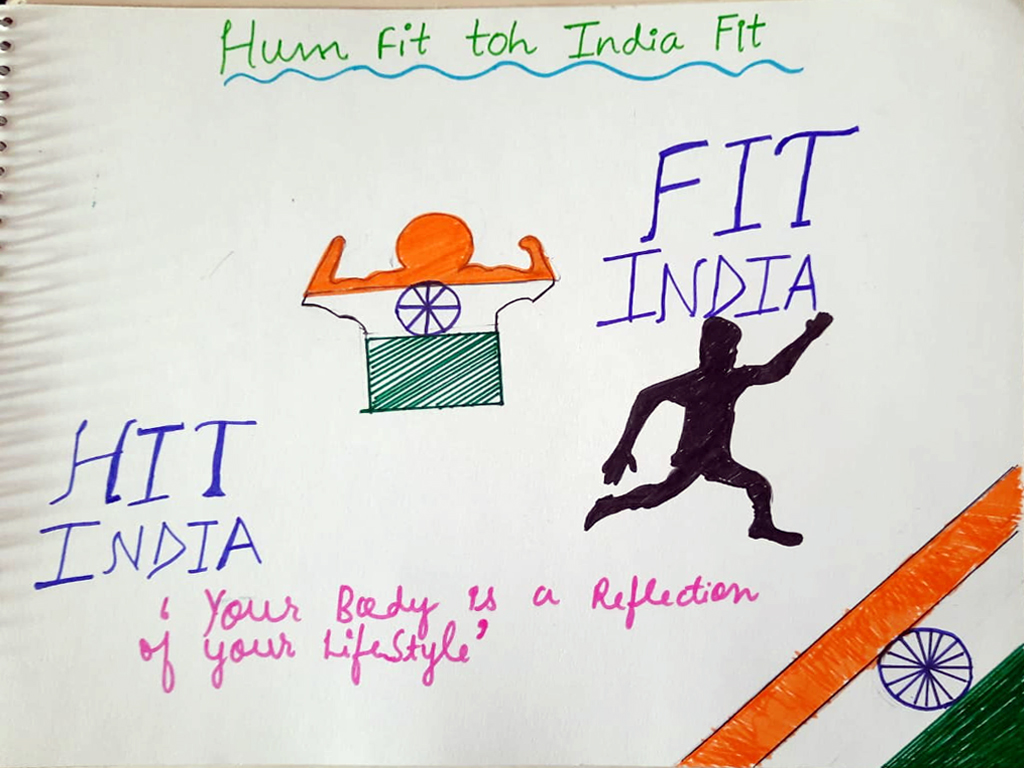 Hum Fit toh India Fit
FIT
INDIA
HIT
INDIA
' Your Body is a Reflection
of your LifeStyle'